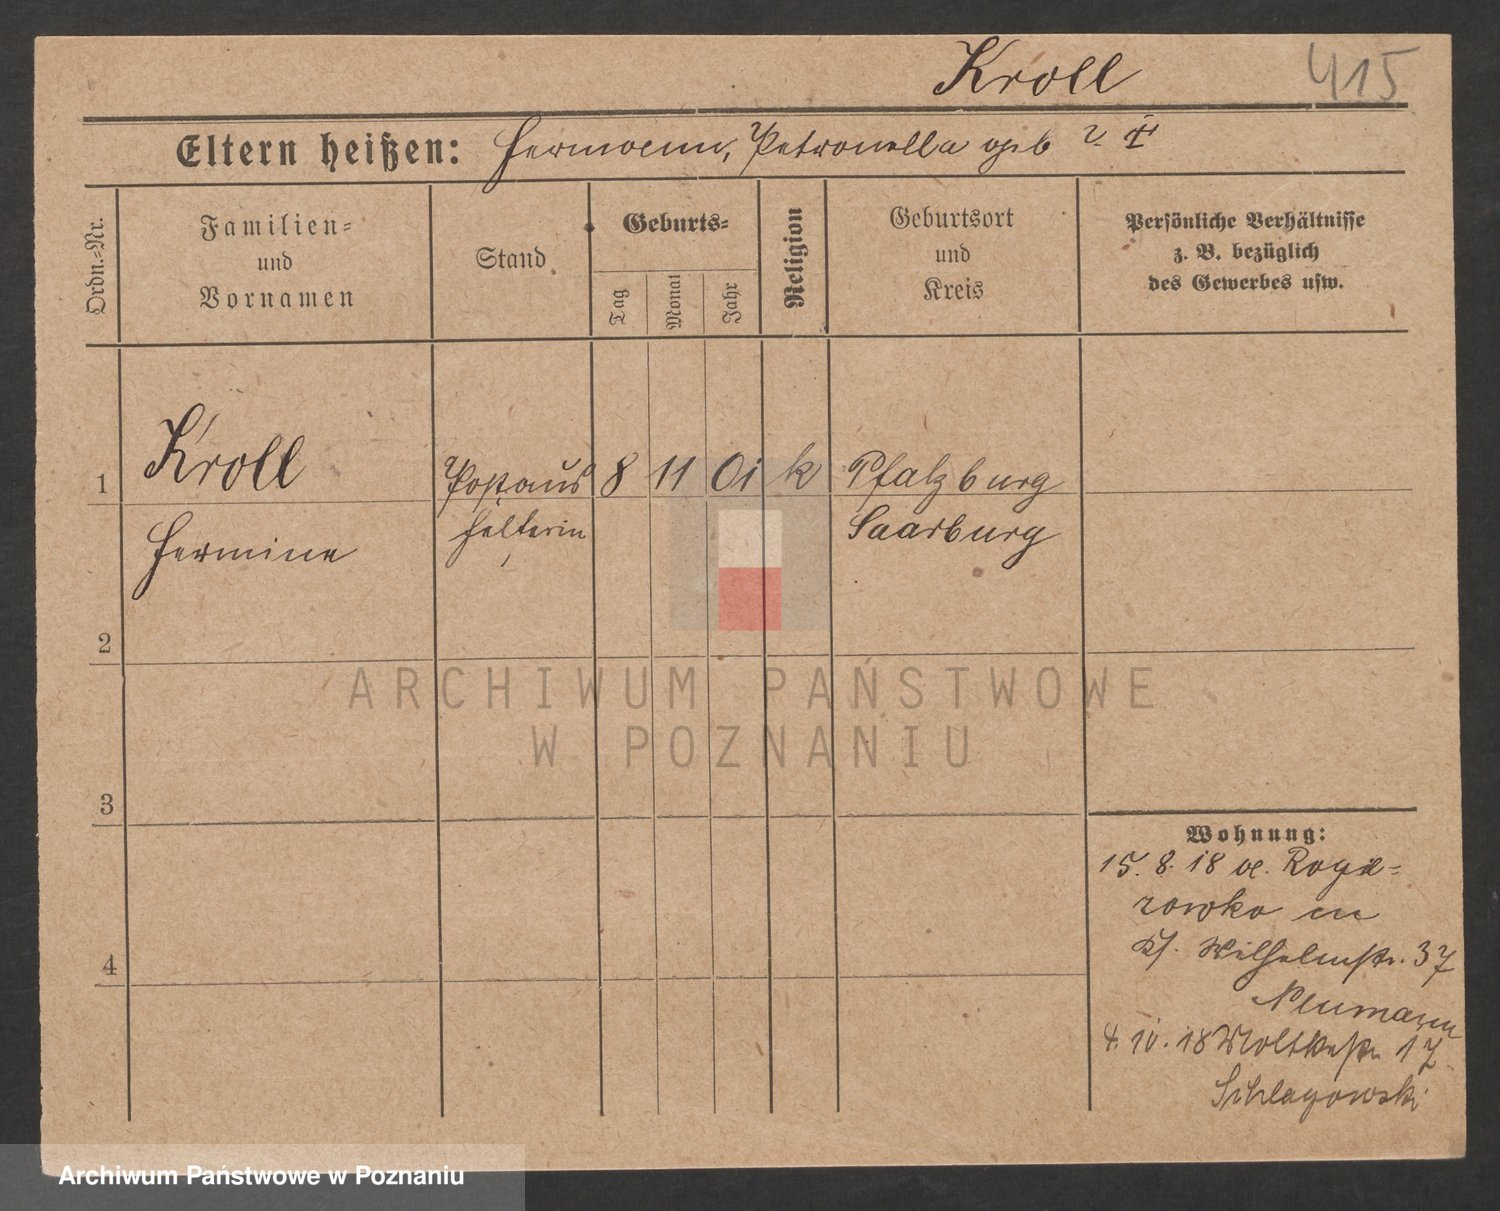 Kroll 415
Eltern heißen: Hermann, Petronella geb v.
Ordn.-Nr.
Familien-
und
Vornamen
Stand
Geburts-
Tag
Monat
Jahr
Religion
Geburtsort
und
Kreis
Persönliche Verhältnisse
z. B. bezüglich
des Gewerbes usw.
1 Kroll Postaus 8 11 01 k Pfalzburg
Hermine helferin Saarburg
2
3
4
Wohnung:
15. 8. 18
Wilhelmstr. 37
Neumann
4. 10. 18 Moltkestr. 17
Schlagowski
ARCHIWUM PAŃSTWOWE
W POZNANIU
Archiwum Państwowe w Poznaniu